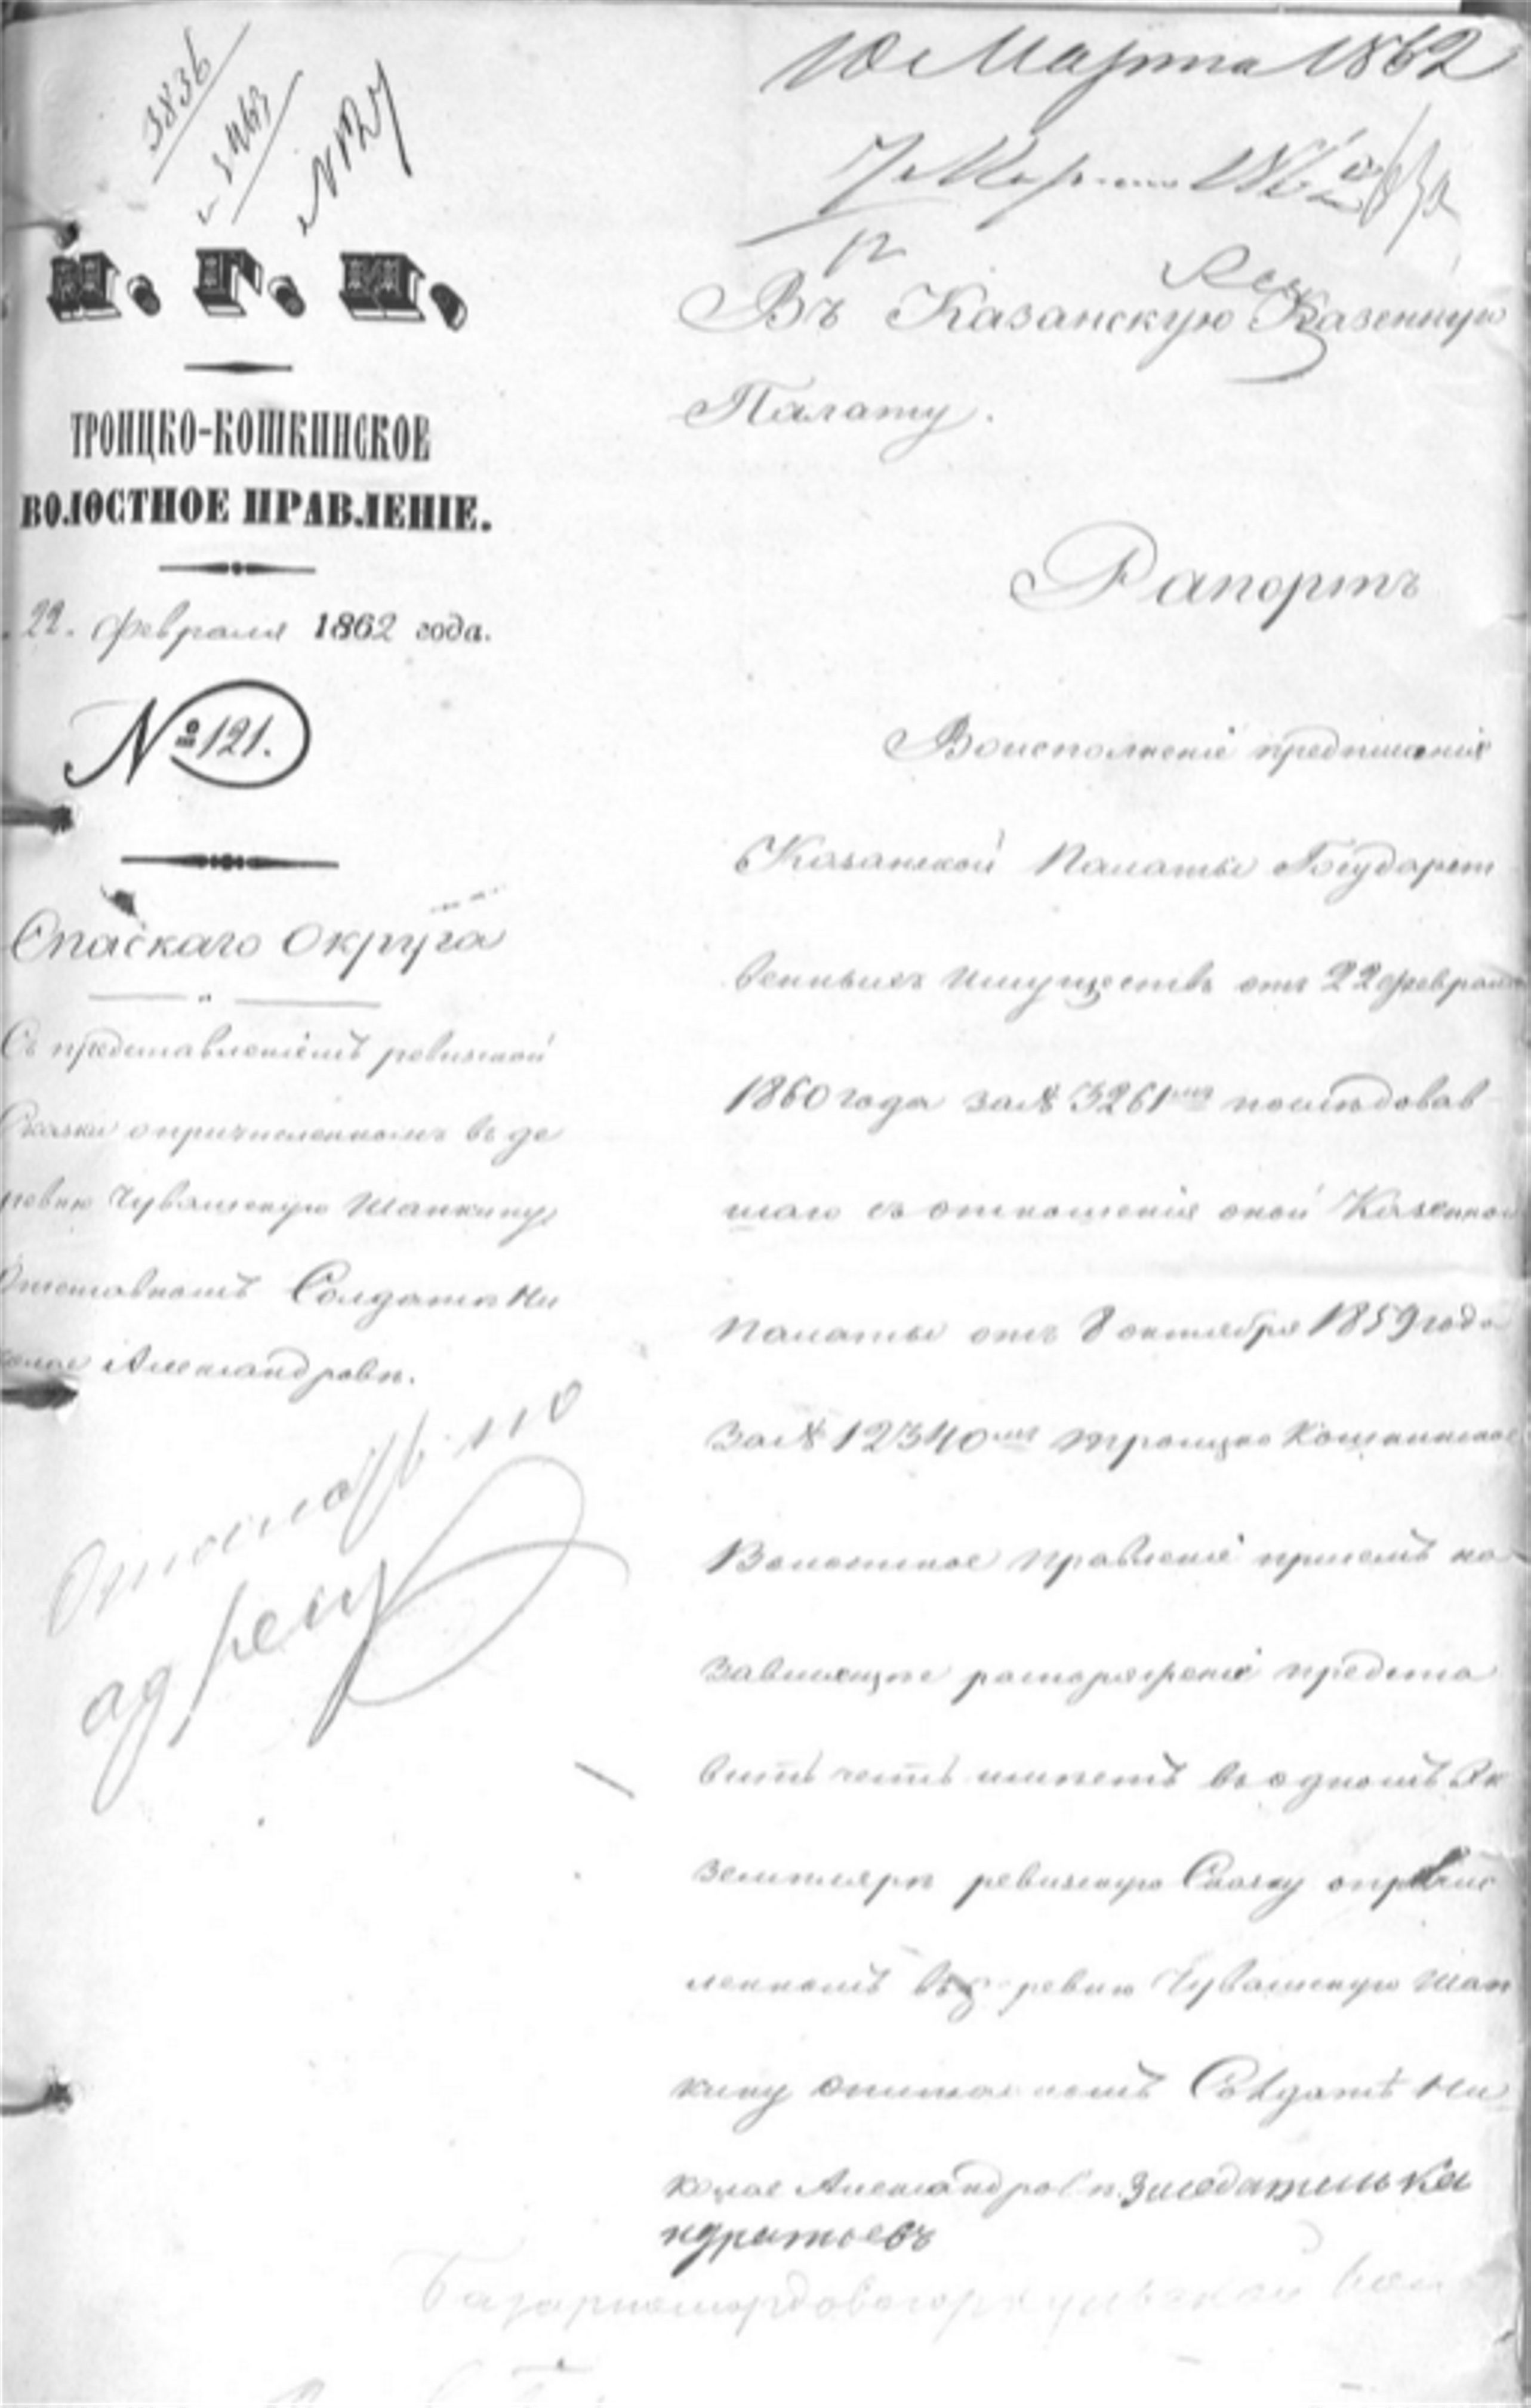 3836
3463
№ 127
М. Г. И.
ТРОИЦКО-КОШКИНСКОЕ
ВОЛОСТНОЕ ПРАВЛЕНІЕ.
22. февраля 1862 года.
№ 121.
Спаскаго Округа
Съ представленіемъ ревизской
Сказки опричисленномъ въ де
ревню Чувашскую Шапкину
Отставномъ Солдате Ни
колае Александрове.
адресу
10 Марта 1862
7 Марта 1862
Въ Казанскую Казенную
Палату.
Рапортъ
Воисполненіе предписанія
Казанской Палаты Государст
венныхъ Имуществъ отъ 22 февраля
1860 года за № 3261мъ последовав
шаго съ отношенія оной Казенной
Палаты отъ 8 октября 1859 года
За № 12340мъ Троицко Кошкинское
Волостное правленіе присемъ на
Зависящее распоряженіе предста
вить честь имѣетъ въ одномъ Эк
земпляре ревизскую Сказку опричис
ленномъ въ де ревню Чувашскую Шап
кину отставномъ Солдатѣ Ни
колае Александрове. Заседатель Ка
ндратьевъ